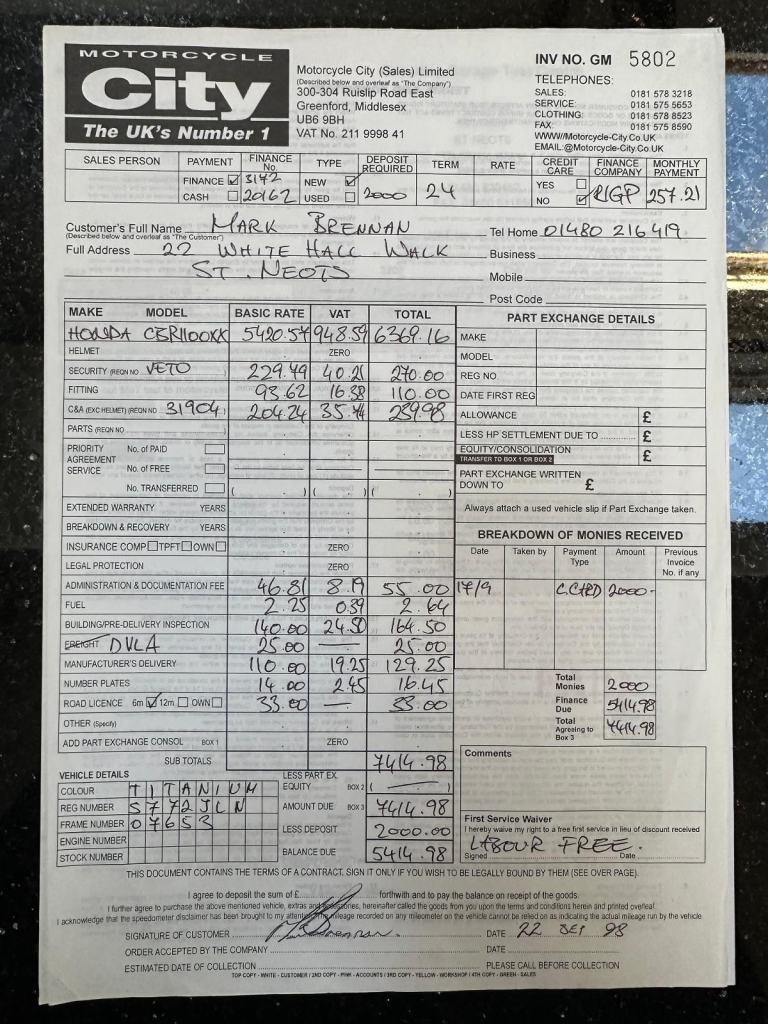 MOTORCYCLE
City
The UK's Number 1
Motorcycle City (Sales) Limited
(Described below and overleaf as "The Company")
300-304 Ruislip Road East
Greenford, Middlesex
UB6 9BH
VAT No. 211 9998 41
INV NO. GM 5802
TELEPHONES:
SALES: 0181 578 3218
SERVICE: 0181 575 5653
CLOTHING: 0181 578 8523
FAX: 0181 575 8590
WWW//Motorcycle-City.Co.UK
EMAIL:@Motorcycle-City.Co.UK
SALES PERSON PAYMENT FINANCE No. TYPE DEPOSIT REQUIRED TERM RATE CREDIT CARE FINANCE COMPANY MONTHLY PAYMENT
FINANCE ☑ 3142 NEW ☑ 2000 24 YES ☐ 257.21
CASH ☐ 20162 USED ☐ NO ☑
Customer's Full Name MARK BRENNAN Tel Home 01480 216419
(Described below and overleaf as "The Customer")
Full Address 22 WHITE HALL WALK Business
ST. NEOTS Mobile
Post Code
MAKE MODEL BASIC RATE VAT TOTAL
HONDA CBR1100XX 5420.57 948.59 6369.16
HELMET ZERO
SECURITY (REQN NO VETO 229.79 40.21 270.00
FITTING 93.62 16.38 110.00
C&A (EXC HELMET) (REQN NO 31904) 204.24 35.74 239.98
PARTS (REQN NO
PRIORITY AGREEMENT SERVICE No. of PAID
No. of FREE
No. TRANSFERRED ( . ) ( . ) ( . )
EXTENDED WARRANTY YEARS
BREAKDOWN & RECOVERY YEARS
INSURANCE COMP ☐ TPFT ☐ OWN ☐ ZERO
LEGAL PROTECTION ZERO
ADMINISTRATION & DOCUMENTATION FEE 46.81 8.19 55.00
FUEL 2.25 0.39 2.64
BUILDING/PRE-DELIVERY INSPECTION 140.00 24.50 164.50
FREIGHT DVLA 25.00 — 25.00
MANUFACTURER'S DELIVERY 110.00 19.25 129.25
NUMBER PLATES 14.00 2.45 16.45
ROAD LICENCE 6m ☑ 12m ☐ OWN ☐ 33.00 — 33.00
OTHER (Specify)
ADD PART EXCHANGE CONSOL BOX 1 ZERO
SUB TOTALS 7414.98
PART EXCHANGE DETAILS
MAKE
MODEL
REG NO
DATE FIRST REG
ALLOWANCE £
LESS HP SETTLEMENT DUE TO ............ £
EQUITY/CONSOLIDATION £
TRANSFER TO BOX 1 OR BOX 2
PART EXCHANGE WRITTEN DOWN TO £
Always attach a used vehicle slip if Part Exchange taken.
BREAKDOWN OF MONIES RECEIVED
Date Taken by Payment Type Amount Previous Invoice No. if any
17/9 C.CARD 2000-
Total Monies 2000
Finance Due 5414.98
Total Agreeing to Box 3 7414.98
VEHICLE DETAILS
COLOUR TITANIUM
REG NUMBER S772JLN
FRAME NUMBER 07653
ENGINE NUMBER
STOCK NUMBER
LESS PART EX. EQUITY BOX 2 ( — )
AMOUNT DUE BOX 3 7414.98
LESS DEPOSIT 2000.00
BALANCE DUE 5414.98
Comments
First Service Waiver
I hereby waive my right to a free first service in lieu of discount received
LABOUR FREE.
Signed Date
THIS DOCUMENT CONTAINS THE TERMS OF A CONTRACT. SIGN IT ONLY IF YOU WISH TO BE LEGALLY BOUND BY THEM (SEE OVER PAGE).
I agree to deposit the sum of £ forthwith and to pay the balance on receipt of the goods.
I further agree to purchase the above mentioned vehicle, extras and accessories, hereinafter called the goods from you upon the terms and conditions herein and printed overleaf.
I acknowledge that the speedometer disclaimer has been brought to my attention. The mileage recorded on any mileometer on the vehicle cannot be relied on as indicating the actual mileage run by the vehicle
SIGNATURE OF CUSTOMER M Brennan. DATE 22 SEP 98
ORDER ACCEPTED BY THE COMPANY DATE
ESTIMATED DATE OF COLLECTION PLEASE CALL BEFORE COLLECTION
TOP COPY - WHITE - CUSTOMER / 2ND COPY - PINK - ACCOUNTS / 3RD COPY - YELLOW - WORKSHOP / 4TH COPY - GREEN - SALES